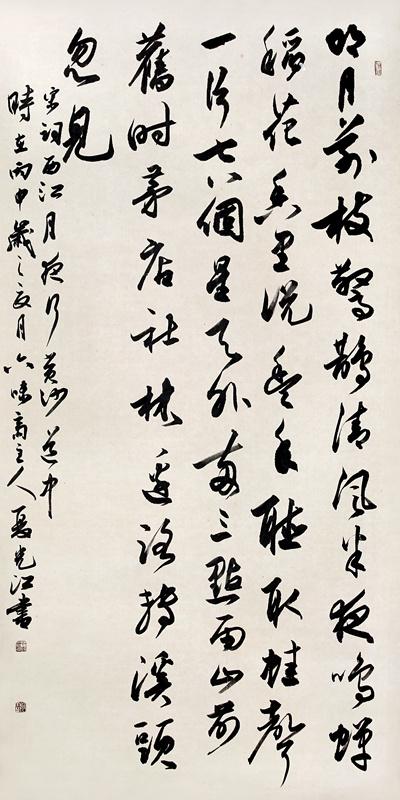 明月別枝驚鵲清風半夜鳴蟬
稻花香里說豐年聽取蛙聲
一片七八個星天外兩三點雨山前
舊時茅店社林邊路轉溪頭
忽見
宋詞西江月夜行黃沙道中
時在丙申歲之夏月六味齋主人光江書